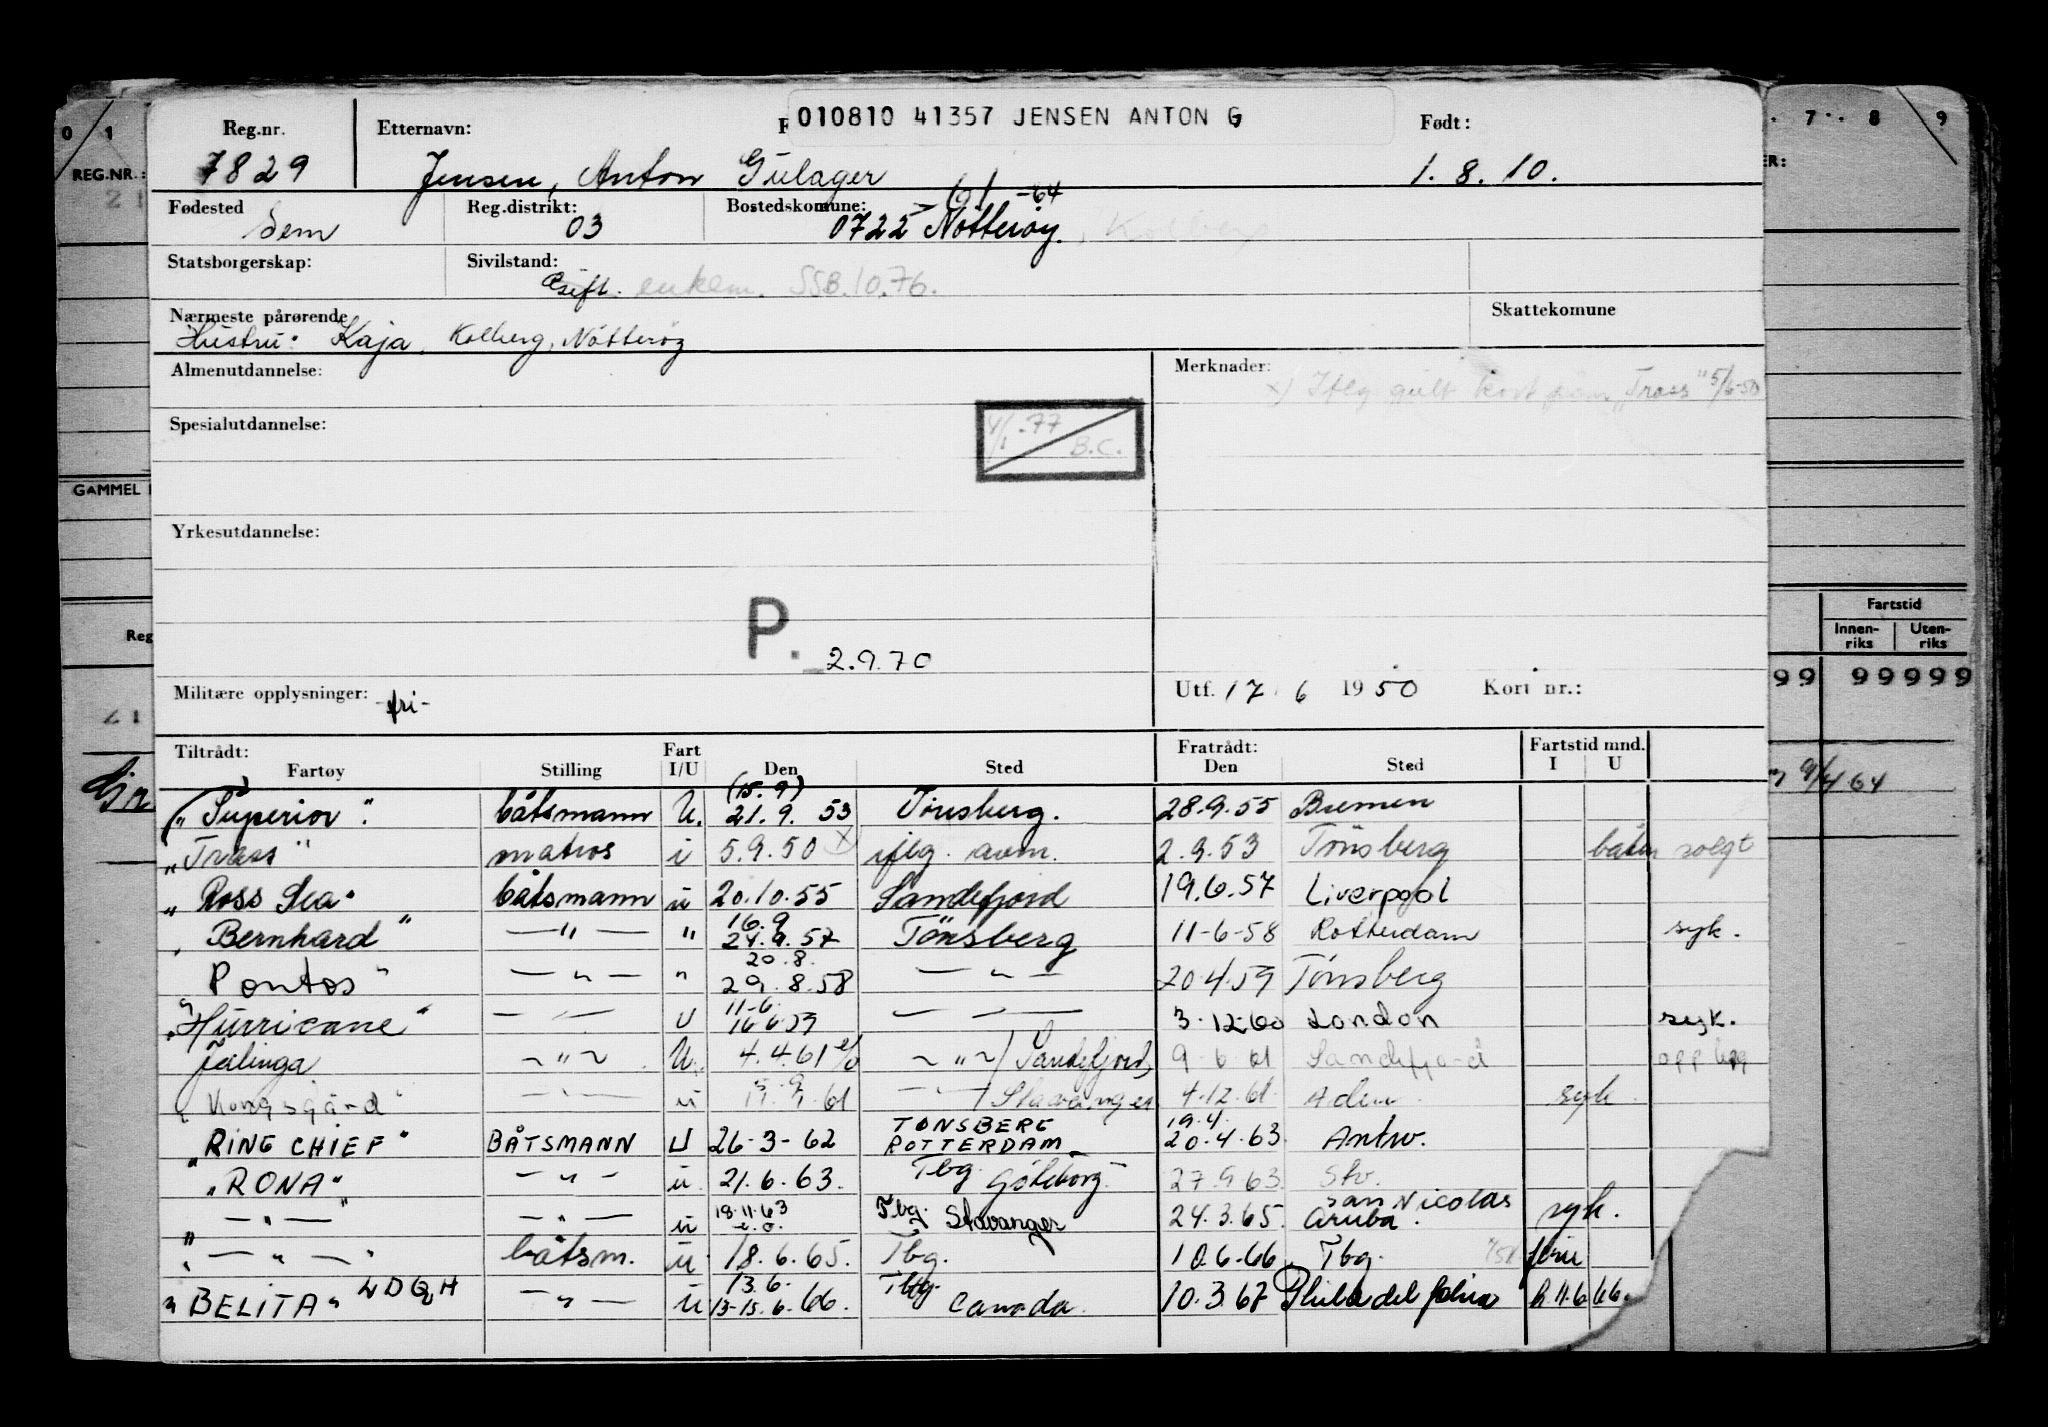 010810 41357 JENSEN ANTON G
Reg.nr. Etternavn: F Født:
7829 Jensen, Anton Gulager 1. 8. 10.
Fødested Reg.distrikt: Bostedskomune: -64
Sem 03 0722 Nøtterøy. , Kolberg
Statsborgerskap: Sivilstand:
Gift. enkem. SSB.10.76.
Nærmeste pårørende Skattekomune
Hustru: Kaja, Kolberg, Nøtterøy
Almenutdannelse: Merknader:
x) Iflg gult kort påm. "Trass" 5/6-50
Spesialutdannelse: 4/1-77 B.C.
Yrkesutdannelse:
P. 2.9.70
Militære opplysninger: -fri- Utf. 17 6 1950 Kort nr.:
Tiltrådt: Fart Fratrådt: Fartstid mnd.
Fartøy Stilling I/U Den Sted Den Sted I U
(15.9)
"Superior". båtsmann U. 21.9. 53 Tønsberg. 28.9.55 Bremen
"Trass" matros i 5.9.50 x iflg. avm. 2.9.53 Tønsberg båten solgt
"Ross Sea" båtsmann u 20.10.55 Sandefjord 19.6.57 Liverpool
16.9
"Bernhard" — " — " 24.9.57 Tönsberg 11-6-58 Rotterdam syk.
20.8.
"Pontos" — " — " 29.8.58 — " — 20.4.59 Tønsberg
11-6
"Hurricane" — " — U 16.6.59 — " — 3-12-60 London syk.
Jalinga — " — U. 4.4.61 e/o — " — / Sandefjord, 9-6-61 Sandefjord opp lag
"Kongsgård" — " — u 61 — " — / Stavanger 4.12.61. Aden. syk.
TØNSBERG 19.4.
"RING CHIEF" BÅTSMANN U 26-3-62 ROTTERDAM 20.4.63. Antw.
"RONA" — " — u. 21.6.63. Tbg. Göteborg 27.9.63. Stv.
18.11.63 San Nicolas
" — " — " — " — u e.o. Tbg. Stavanger 24.3.65. Aruba. syk.
" — " — " båtsm. u. 18.6.65. Tbg. 10.6-66. Tbg. ferie
13.6. Tbg.
"BELITA" LDQH — " — u 13-15.6.66. Canada. 10.3.67 Philadelphia h 11.6.66.
0 1 7 8 9
REG.NR.:
GAMMEL
Reg
Fartstid
Innen-riks Uten-riks
99 99999
9/4 64